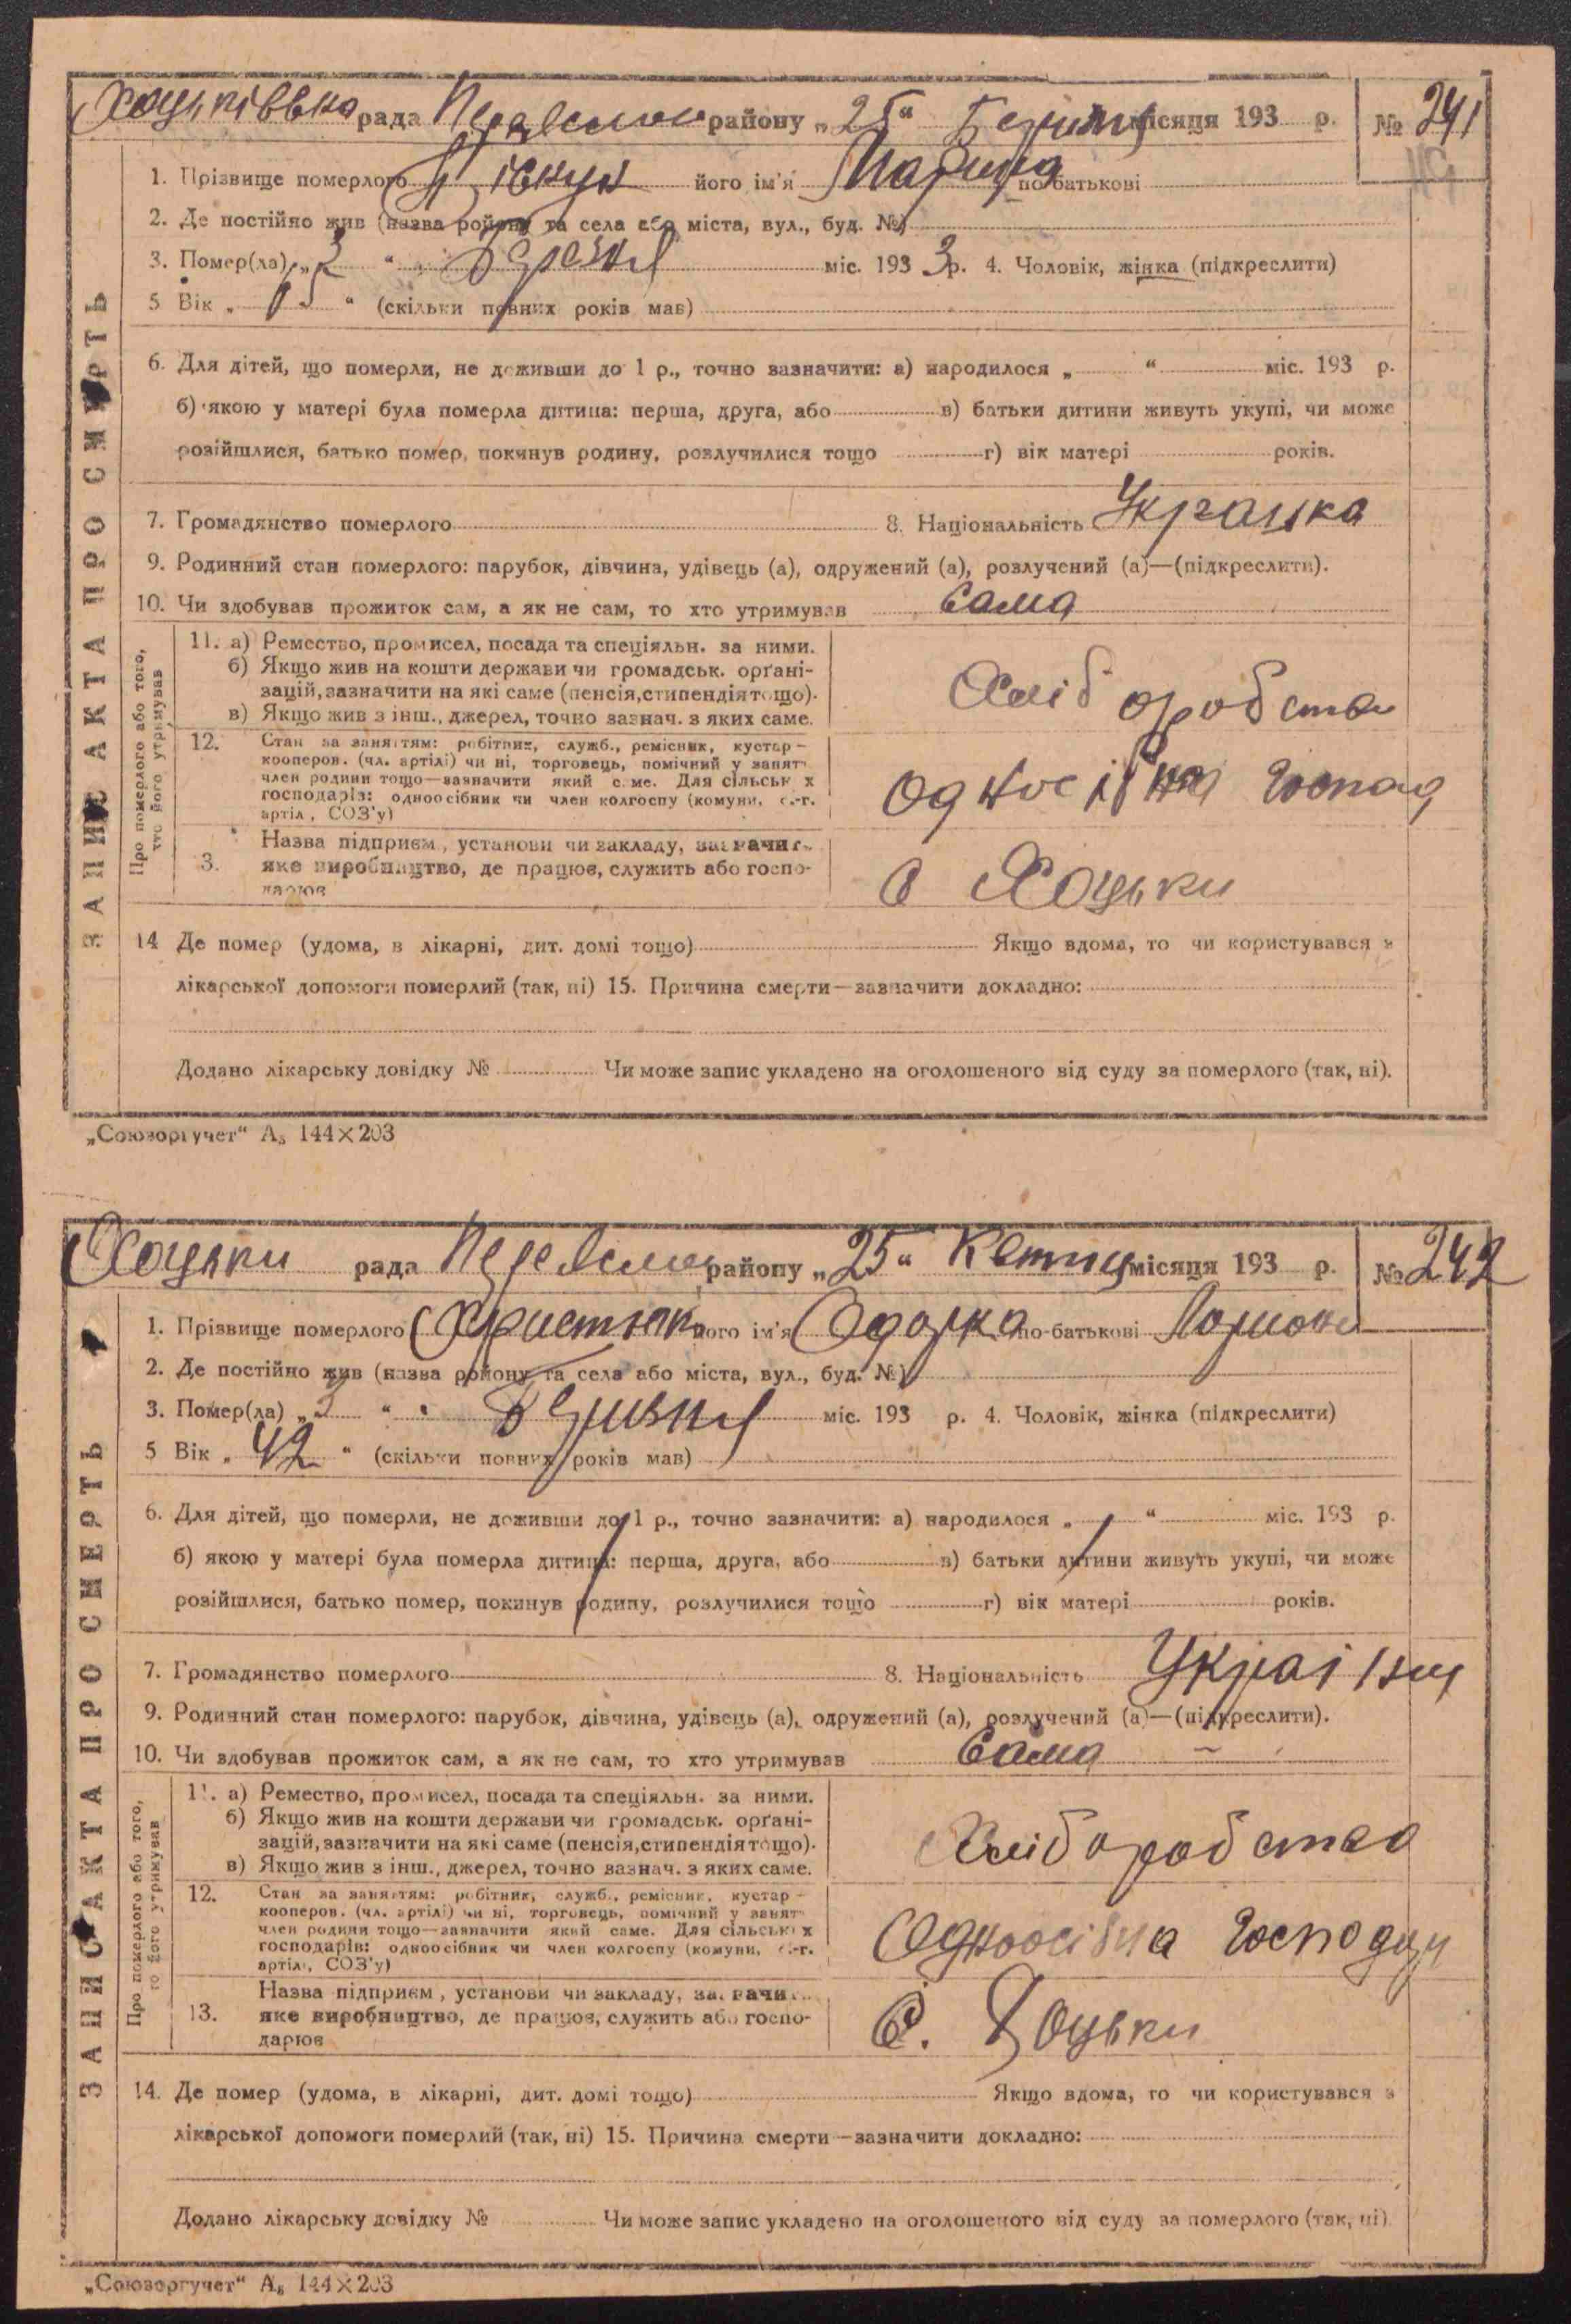 Хоцьківська рада Переяслов району „25“ Березня місяця 193 р. № 241
ЗАПИС АКТА ПРО СМЕРТЬ
1. Прізвище померлого його ім'я Марина по-батькові
2. Де постійно жив (назва ройону та села або міста, вул., буд. №)
3. Помер(ла) „2“ Березня міс. 193 3 р. 4. Чоловік, жінка (підкреслити)
5 Вік „ “ (скільки повних років мав)
6. Для дітей, що померли, не доживши до 1 р., точно зазначити: а) народилося „ “ міс. 193 р.
б) якою у матері була померла дитина: перша, друга, або в) батьки дитини живуть укупі, чи може
розійшлися, батько помер, покинув родину, розлучилися тощо г) вік матері років.
7. Громадянство померлого 8. Національність Украінка
9. Родинний стан померлого: парубок, дівчина, удівець (а), одружений (а), розлучений (а)—(підкреслити).
10. Чи здобував прожиток сам, а як не сам, то хто утримував Сама
Про померлого або того, хто його утримував
11. а) Ремество, промисел, посада та спеціяльн. за ними.
б) Якщо жив на кошти держави чи громадськ. орґані-
зацій, зазначити на які саме (пенсія, стипендія тощо).
в) Якщо жив з інш., джерел, точно зазнач. з яких саме.
Хліборобство
12. Стан за заняттям: робітник, служб., ремісник, кустар –
кооперов. (чл. артілі) чи ні, торговець, помічний у занятт
член родини тощо—зазначити який саме. Для сільськ х
господарів: одноосібник чи член колгоспу (комуни, с.-г.
артіл, СОЗ'у)
одноосібна господ
3. Назва підприєм, установи чи закладу, зазначит
яке виробництво, де працює, служить або госпо-
дарює
с Хоцьки
14 Де помер (удома, в лікарні, дит. домі тощо) Якщо вдома, то чи користувався з
лікарської допомоги померлий (так, ні) 15. Причина смерти—зазначити докладно:
Додано лікарську довідку № Чи може запис укладено на оголошеного від суду за померлого (так, ні).
„Союзоргучет“ А₅ 144×203
Хоцьки рада Переяслов району „25“ Квітня місяця 193 р. № 242
ЗАПИС АКТА ПРО СМЕРТЬ
1. Прізвище померлого Христюк його ім'я Одарка по-батькові
2. Де постійно жив (назва ройону та села або міста, вул., буд. №)
3. Помер(ла) „2“ міс. 193 р. 4. Чоловік, жінка (підкреслити)
5 Вік „42“ (скільки повних років мав)
6. Для дітей, що померли, не доживши до 1 р., точно зазначити: а) народилося „ “ міс. 193 р.
б) якою у матері була померла дитина: перша, друга, або в) батьки дитини живуть укупі, чи може
розійшлися, батько помер, покинув родину, розлучилися тощо г) вік матері років.
7. Громадянство померлого 8. Національність
9. Родинний стан померлого: парубок, дівчина, удівець (а), одружений (а), розлучений (а)—(підкреслити).
10. Чи здобував прожиток сам, а як не сам, то хто утримував Сама
Про померлого або того, хто його утримував
11. а) Ремество, промисел, посада та спеціяльн. за ними.
б) Якщо жив на кошти держави чи громадськ. орґані-
зацій, зазначити на які саме (пенсія, стипендія тощо).
в) Якщо жив з інш., джерел, точно зазнач. з яких саме.
Хліборобство
12. Стан за заняттям: робітник, служб., ремісник, кустар –
кооперов. (чл. артілі) чи ні, торговець, помічний у занятт
член родини тощо—зазначити який саме. Для сільськіх
господарів: одноосібник чи член колгоспу (комуни, с.-г.
артіл, СОЗ'у)
Одноосібна господ
13. Назва підприєм, установи чи закладу, зазначи
яке виробництво, де працює, служить або госпо-
дарює
С. Хоцьки
14. Де помер (удома, в лікарні, дит. домі тощо) Якщо вдома, то чи користувався з
лікарської допомоги померлий (так, ні) 15. Причина смерти—зазначити докладно:
Додано лікарську довідку № Чи може запис укладено на оголошеного від суду за померлого (так, ні)
„Союзоргучет“ А₅ 144×203